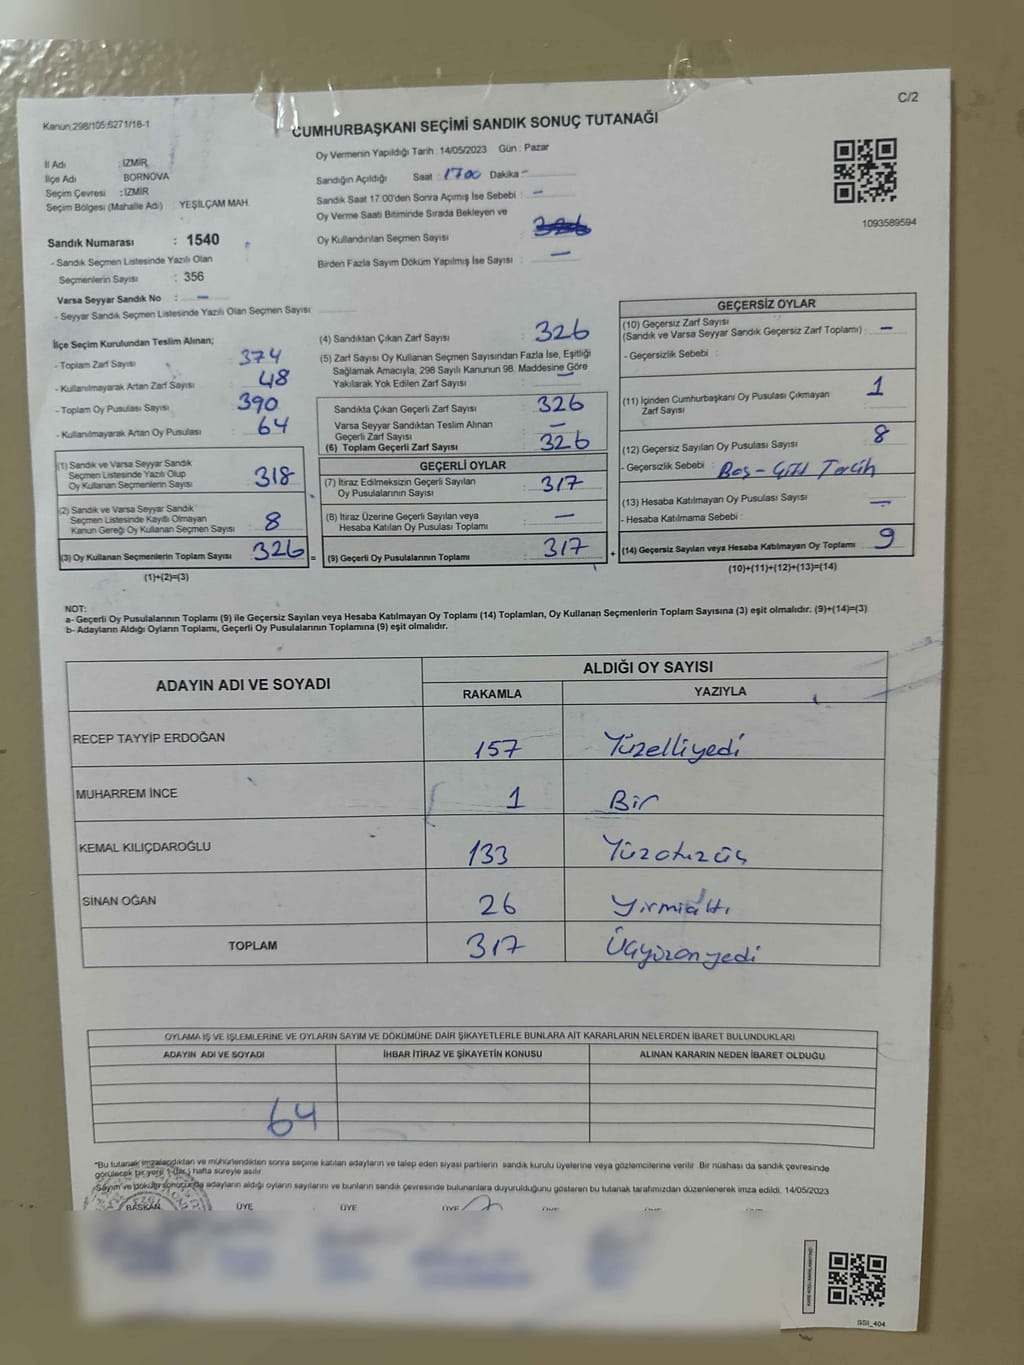 C/2
Kanun:298/105;6271/18-1
CUMHURBAŞKANI SEÇİMİ SANDIK SONUÇ TUTANAĞI
İl Adı : İZMİR
İlçe Adı BORNOVA
Seçim Çevresi : İZMİR
Seçim Bölgesi (Mahalle Adı) YEŞİLÇAM MAH.
Sandık Numarası : 1540
- Sandık Seçmen Listesinde Yazılı Olan
Seçmenlerin Sayısı : 356
Varsa Seyyar Sandık No : -
- Seyyar Sandık Seçmen Listesinde Yazılı Olan Seçmen Sayısı:
Oy Vermenin Yapıldığı Tarih : 14/05/2023 Gün : Pazar
Sandığın Açıldığı Saat : 1700 Dakika -
Sandık Saat 17:00'den Sonra Açımış İse Sebebi : -
Oy Verme Saati Bitiminde Sırada Bekleyen ve
Oy Kullandırılan Seçmen Sayısı
Birden Fazla Sayım Döküm Yapılmış İse Sayısı : -
1093589594
İlçe Seçim Kurulundan Teslim Alınan;
- Toplam Zarf Sayısı 374
- Kullanılmayarak Artan Zarf Sayısı 48
- Toplam Oy Pusulası Sayısı 390
- Kullanılmayarak Artan Oy Pusulası 64
(1) Sandık ve Varsa Seyyar Sandık
Seçmen Listesinde Yazılı Olup
Oy Kullanan Seçmenlerin Sayısı 318
(2) Sandık ve Varsa Seyyar Sandık
Seçmen Listesinde Kayıtlı Olmayan
Kanun Gereği Oy Kullanan Seçmen Sayısı 8
(3) Oy Kullanan Seçmenlerin Toplam Sayısı 326 =
(1)+(2)=(3)
(4) Sandıktan Çıkan Zarf Sayısı 326
(5) Zarf Sayısı Oy Kullanan Seçmen Sayısından Fazla İse, Eşitliği
Sağlamak Amacıyla, 298 Sayılı Kanunun 98. Maddesine Göre
Yakılarak Yok Edilen Zarf Sayısı -
Sandıkta Çıkan Geçerli Zarf Sayısı 326
Varsa Seyyar Sandıktan Teslim Alınan
Geçerli Zarf Sayısı -
(6) Toplam Geçerli Zarf Sayısı 326
GEÇERLİ OYLAR
(7) İtiraz Edilmeksizin Geçerli Sayılan
Oy Pusulalarının Sayısı 317
(8) İtiraz Üzerine Geçerli Sayılan veya
Hesaba Katılan Oy Pusulası Toplamı -
(9) Geçerli Oy Pusulalarının Toplamı 317 +
GEÇERSİZ OYLAR
(10) Geçersiz Zarf Sayısı
(Sandık ve Varsa Seyyar Sandık Geçersiz Zarf Toplamı) -
- Geçersizlik Sebebi :
(11) İçinden Cumhurbaşkanı Oy Pusulası Çıkmayan
Zarf Sayısı 1
(12) Geçersiz Sayılan Oy Pusulası Sayısı 8
- Geçersizlik Sebebi : Boş - Çift Tercih
(13) Hesaba Katılmayan Oy Pusulası Sayısı -
- Hesaba Katılmama Sebebi :
(14) Geçersiz Sayılan veya Hesaba Katılmayan Oy Toplamı 9
(10)+(11)+(12)+(13)=(14)
NOT:
a- Geçerli Oy Pusulalarının Toplamı (9) ile Geçersiz Sayılan veya Hesaba Katılmayan Oy Toplamı (14) Toplamları, Oy Kullanan Seçmenlerin Toplam Sayısına (3) eşit olmalıdır. (9)+(14)=(3)
b- Adayların Aldığı Oyların Toplamı, Geçerli Oy Pusulalarının Toplamına (9) eşit olmalıdır.
ADAYIN ADI VE SOYADI ALDIĞI OY SAYISI
RAKAMLA YAZIYLA
RECEP TAYYİP ERDOĞAN 157 Yüzelliyedi
MUHARREM İNCE 1 Bir
KEMAL KILIÇDAROĞLU 133 Yüzotuzüç
SİNAN OĞAN 26 Yirmialtı
TOPLAM 317 Üçyüzonyedi
OYLAMA İŞ VE İŞLEMLERİNE VE OYLARIN SAYIM VE DÖKÜMÜNE DAİR ŞİKAYETLERLE BUNLARA AİT KARARLARIN NELERDEN İBARET BULUNDUKLARI
ADAYIN ADI VE SOYADI İHBAR İTİRAZ VE ŞİKAYETİN KONUSU ALINAN KARARIN NEDEN İBARET OLDUĞU
64
*Bu tutanak imzalandıktan ve mühürlendikten sonra seçime katılan adayların ve talep eden siyasi partilerin sandık kurulu üyelerine veya gözlemcilerine verilir. Bir nüshası da sandık çevresinde
görülecek bir yere 1 (bir ) hafta süreyle asılır.
Sayım ve döküm sonucunda adayların aldığı oyların sayılarını ve bunların sandık çevresinde bulunanlara duyurulduğunu gösteren bu tutanak tarafımızdan düzenlenerek imza edildi. 14/05/2023
BAŞKAN ÜYE ÜYE ÜYE ÜYE ÜYE ÜYE
SSI_404